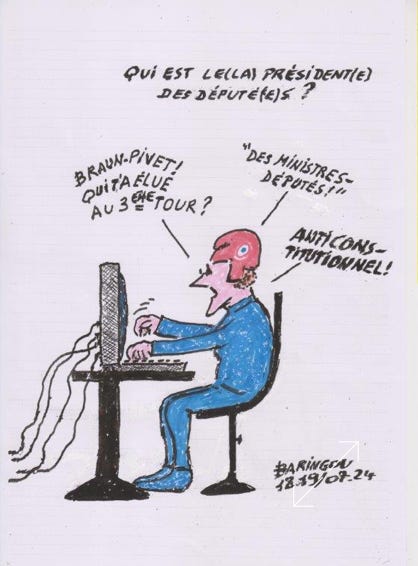 QUI EST LE(LA) PRÉSIDENT(E)
DES DÉPUTÉ(E)S ?
BRAUN-PIVET!
QUI T'A ÉLUE
AU 3ÈME TOUR ?
"DES MINISTRES-
DÉPUTÉS!"
ANTICONS-
TITUTIONNEL!
BARINGOU
18.19/07.24